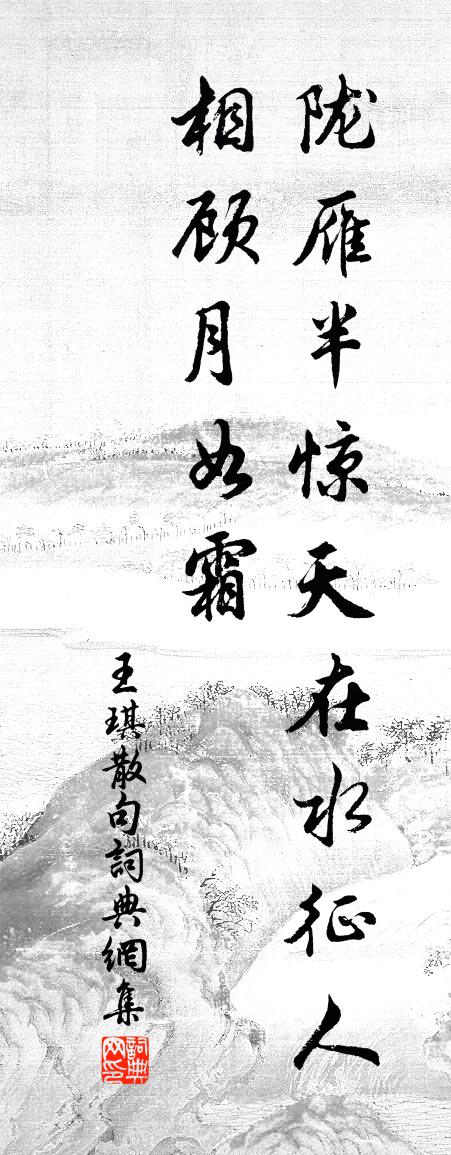 陇雁半惊天在水征人
相顾月如霜
王琪散句词典網集
詞典网印